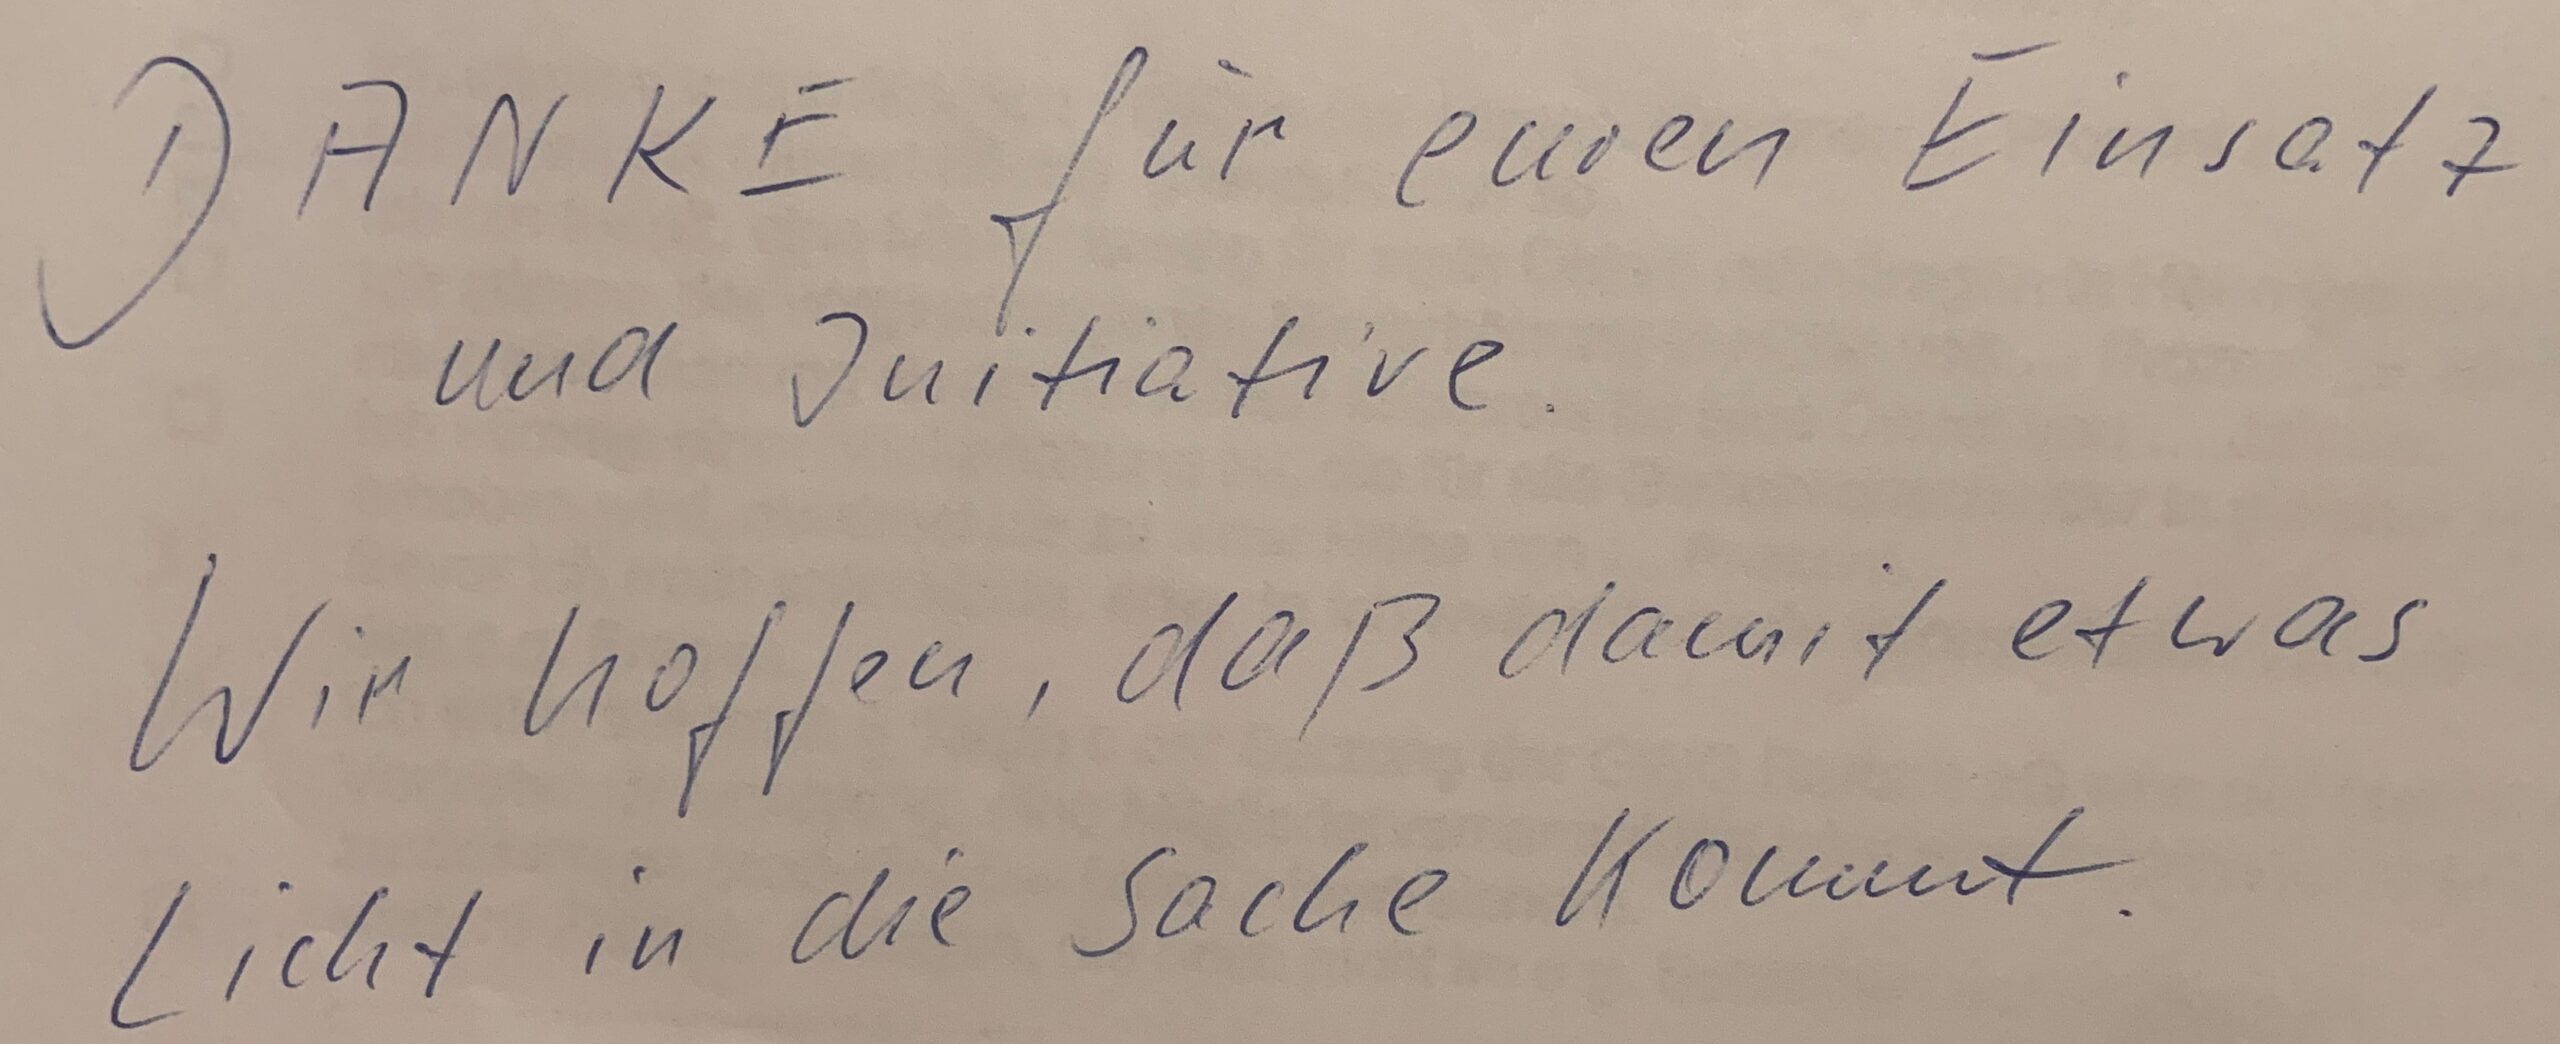 DANKE für euren Einsatz
und Initiative.
Wir hoffen, daß damit etwas
Licht in die Sache kommt.